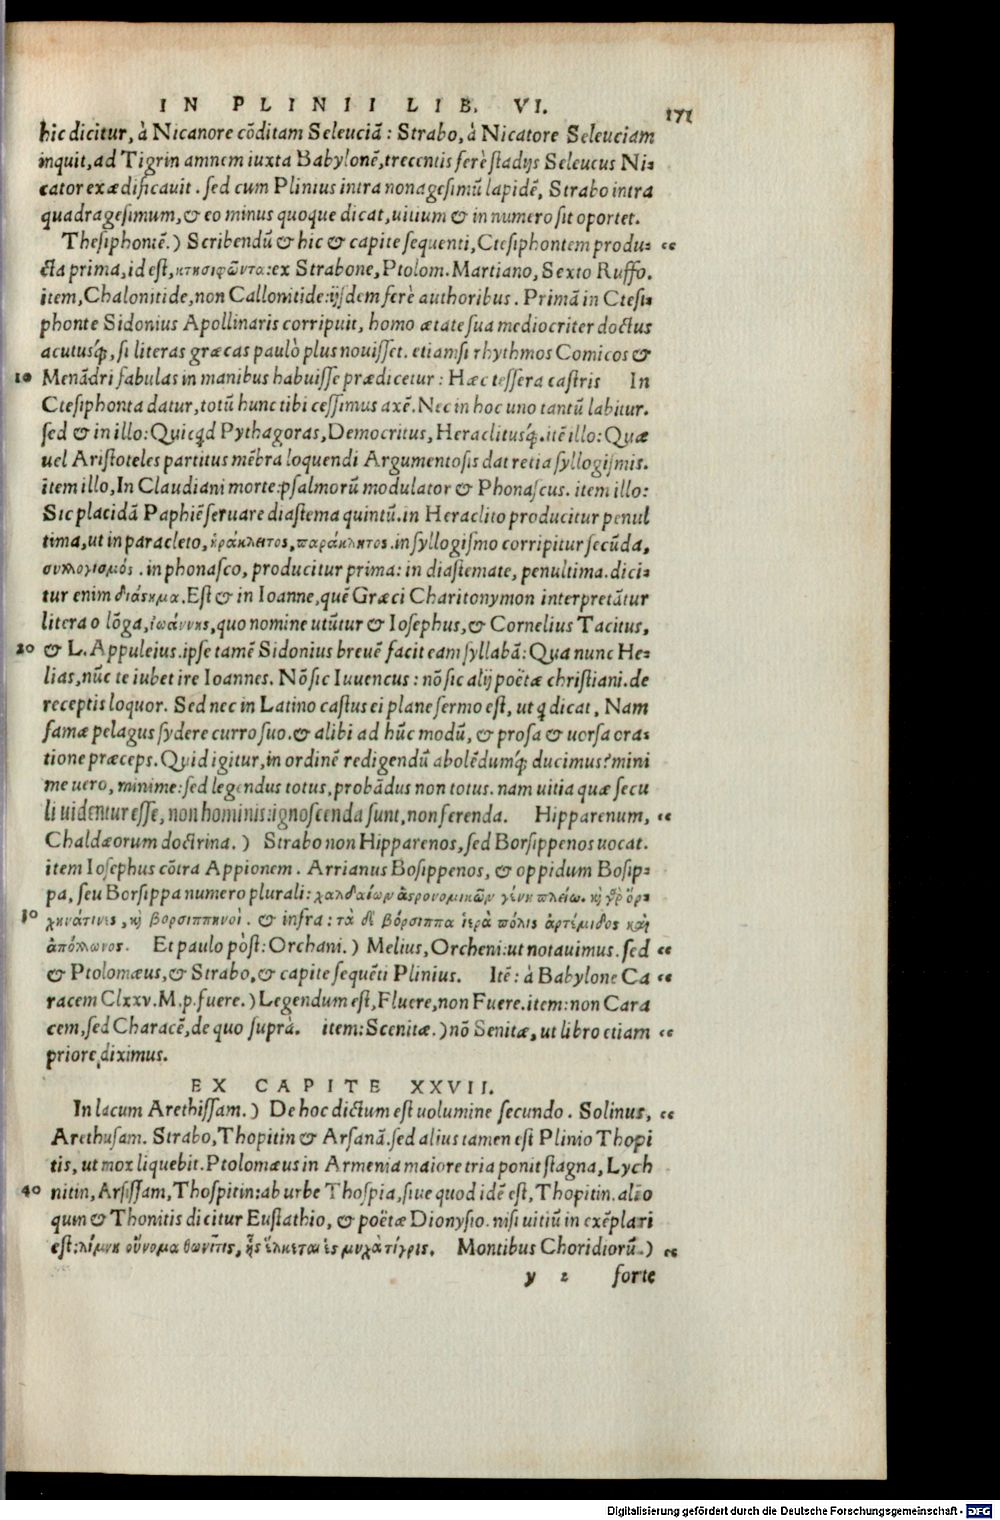 IN PLINII LIB. VI. 171
hic dicitur, à Nicanore cōditam Seleuciā: Strabo, à Nicatore Seleuciam
inquit, ad Tigrin amnem iuxta Babylonē, trecentis ferè stadijs Seleucus Ni=
cator exædificauit. sed cum Plinius intra nonagesimū lapidē, Strabo intra
quadragesimum, & eo minus quoque dicat, uitium & in numero sit oportet.
Thesiphontē.) Scribendū & hic & capite sequenti, Ctesiphontem produ= “
cta prima, id est, κτησιφῶντα: ex Strabone, Ptolom. Martiano, Sexto Ruffo.
item, Chalonitide, non Callonitide: ijsdem ferè authoribus. Primā in Ctesi=
phonte Sidonius Apollinaris corripuit, homo ætate sua mediocriter doctus
acutusq́;, si literas græcas paulò plus nouisset. etiamsi rhythmos Comicos &
10 Menādri fabulas in manibus habuisse prædicetur: Hæc tessera castris In
Ctesiphonta datur, totū hunc tibi cessimus axē. Nec in hoc uno tantū labitur.
sed & in illo: Quicꝗd Pythagoras, Democritus, Heraclitusq́;. itē illo: Quæ
uel Aristoteles partitus mēbra loquendi Argumentosis dat retia syllogismis.
item illo, In Claudiani morte: psalmorū modulator & Phonascus. item illo:
Sic placidā Paphiē seruare diastema quintū. in Heraclito producitur penul
tima, ut in paracleto, ἡράκλειτος, παράκλητος. in syllogismo corripitur secūda,
συλλογισμός. in phonasco, producitur prima: in diastemate, penultima. dici=
tur enim διάστημα. Est & in Ioanne, quē Græci Charitonymon interpretātur
litera o lōga, ἰωάννης, quo nomine utūtur & Iosephus, & Cornelius Tacitus,
20 & L. Appuleius. ipse tamē Sidonius breuē facit eam syllabā: Qua nunc He=
lias, nūc te iubet ire Ioannes. Nō sic Iuuencus: nō sic alij poëtæ christiani. de
receptis loquor. Sed nec in Latino castus ei plane sermo est, ut ꝗ dicat, Nam
famæ pelagus sydere curro suo. & alibi ad hūc modū, & prosa & uorsa ora=
tione præceps. Quid igitur, in ordinē redigendū abolēdumq́; ducimus? mini
me uero, minime: sed legendus totus, probādus non totus. nam uitia quæ secu
li uidentur esse, non hominis: ignoscenda sunt, non ferenda. Hipparenum, “
Chaldæorum doctrina.) Strabo non Hipparenos, sed Borsippenos uocat.
item Iosephus cōtra Appionem. Arrianus Bosippenos, & oppidum Bosip=
pa, seu Borsippa numero plurali: χαλδαίων ἀστρονομικῶν γένη πλείω. καὶ γὰρ ὀρ=
30 χηνοί τινες, καὶ βορσιππηνοί. & infra: τὰ δὲ βόρσιππα ἱερὰ πόλις ἀρτέμιδος καὶ
ἀπόλλωνος. Et paulo pòst: Orchani.) Melius, Orcheni: ut notauimus. sed “
& Ptolomæus, & Strabo, & capite sequēti Plinius. Itē: à Babylone Ca “
racem Clxxv. M. p. fuere.) Legendum est, Fluere, non Fuere. item: non Cara
cem, sed Characē, de quo suprà. item: Scenitæ.) nō Senitæ, ut libro etiam “
priore diximus.
EX CAPITE XXVII.
In lacum Arethissam.) De hoc dictum est uolumine secundo. Solinus, “
Arethusam. Strabo, Thopitin & Arsanā. sed alius tamen est Plinio Thopi
tis, ut mox liquebit. Ptolomæus in Armenia maiore tria ponit stagna, Lych
40 nitin, Arsissam, Thospitin: ab urbe Thospia, siue quod idē est, Thopitin. alio
qum & Thonitis dicitur Eustathio, & poëtæ Dionysio. nisi uitiū in exēplari
est: λίμνη οὔνομα θωνῖτις, ἧς ἕλκεται ἐς μυχὰ τίγρις. Montibus Choridiorū.) “
y 2 forte
Digitalisierung gefördert durch die Deutsche Forschungsgemeinschaft - DFG